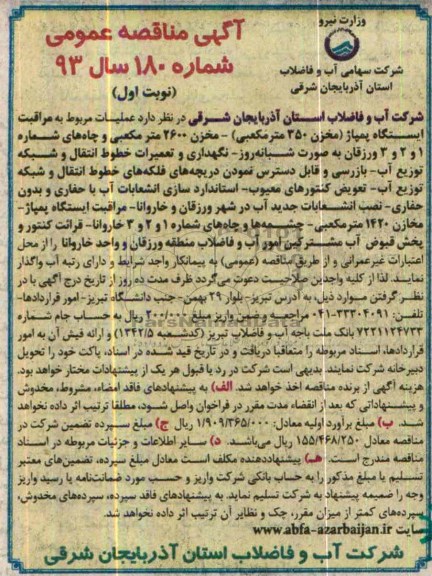 وزارت نیرو
شرکت سهامی آب و فاضلاب
استان آذربایجان شرقی
آگهی مناقصه عمومی
شماره ۱۸۰ سال ۹۳
(نوبت اول)
شرکت آب و فاضلاب استان آذربایجان شرقی در نظر دارد عملیات مربوط به مراقبت
ایستگاه پمپاژ (مخزن ۳۵۰ مترمکعبی) - مخزن ۲۶۰۰ متر مکعبی و چاه‌های شماره
۱ و ۲ و ۳ ورزقان به صورت شبانه‌روز- نگهداری و تعمیرات خطوط انتقال و شبکه
توزیع آب- بازرسی و قابل دسترس نمودن دریچه‌های فلکه‌های خطوط انتقال و شبکه
توزیع آب- تعویض کنتورهای معیوب- استاندارد سازی انشعابات آب با حفاری و بدون
حفاری- نصب انشعابات جدید آب در شهر ورزقان و خاروانا- مراقبت ایستگاه پمپاژ-
مخازن ۱۴۲۰ مترمکعبی- چشمه‌ها و چاه‌های شماره ۱ و ۲ و ۳ خاروانا- قرائت کنتور و
پخش قبوض آب مشترکین امور آب و فاضلاب منطقه ورزقان و واحد خاروانا را از محل
اعتبارات غیرعمرانی و از طریق مناقصه (عمومی) به پیمانکار واجد شرایط و دارای رتبه آب واگذار
نماید. لذا از کلیه واجدین صلاحیت دعوت می‌گردد ظرف مدت ده روز از تاریخ درج آگهی با در
نظر گرفتن موارد ذیل، به آدرس تبریز- بلوار ۲۹ بهمن- جنب دانشگاه تبریز- امور قراردادها-
تلفن: ۳۳۳۰۴۰۹۱-۰۴۱ مراجعه و ضمن واریز مبلغ ۲۰۰/۰۰۰ ریال به حساب جام شماره
۷۲۲۱۱۲۴۷۳۳ بانک ملت باجه آب و فاضلاب تبریز (کدشعبه ۱۳۴۲/۵) و ارائه فیش آن به امور
قراردادها، اسناد مربوطه را متعاقبا دریافت و در تاریخ قید شده در اسناد، پاکت خود را تحویل
دبیرخانه شرکت نمایند. بدیهی است شرکت در رد یا قبول هر یک از پیشنهادات مختار خواهد بود.
هزینه آگهی از برنده مناقصه اخذ خواهد شد. الف) به پیشنهادهای فاقد امضاء، مشروط، مخدوش
و پیشنهاداتی که بعد از انقضاء مدت مقرر در فراخوان واصل شود، مطلقا ترتیب اثر داده نخواهد
شد. ب) مبلغ برآورد اولیه معادل: ۱/۹۰۹/۳۶۵/۰۰۰ ریال ج) مبلغ سپرده تضمین شرکت در
مناقصه معادل ۱۵۵/۴۶۸/۲۵۰ ریال می‌باشد. د) سایر اطلاعات و جزئیات مربوطه در اسناد
مناقصه مندرج است. هـ) پیشنهاددهنده مکلف است معادل مبلغ سپرده، تضمین‌های معتبر
تسلیم یا مبلغ مذکور را به حساب بانکی شرکت واریز و حسب مورد ضمانت‌نامه یا رسید واریز
وجه را ضمیمه پیشنهاد به شرکت تسلیم نماید. به پیشنهادهای فاقد سپرده، سپرده‌های مخدوش،
سپرده‌های کمتر از میزان مقرر، چک و نظایر آن ترتیب اثر داده نخواهد شد.
سایت www.abfa-azarbaijan.ir
شرکت آب و فاضلاب استان آذربایجان شرقی